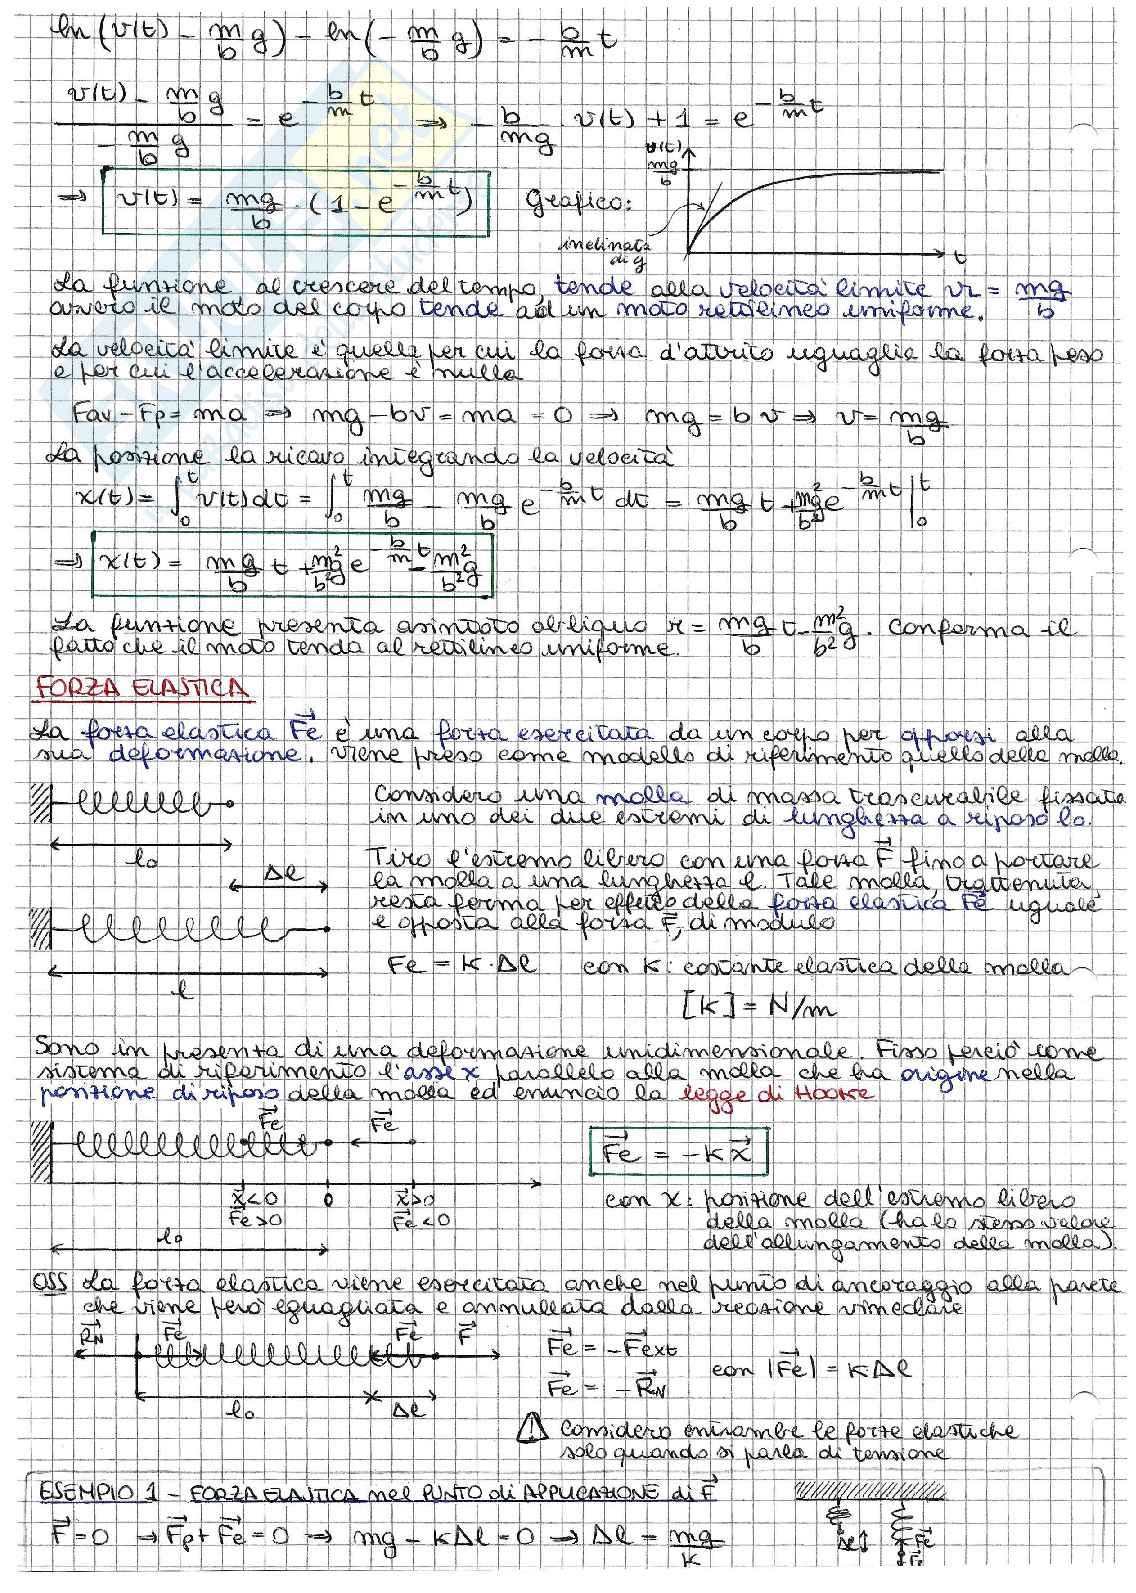 ln (v(t) - m/b g) - ln (- m/b g) = - b/m t
(v(t) - m/b g) / (- m/b g) = e^(- b/m t) ⇒ - b/mg v(t) + 1 = e^(- b/m t)
⇒ v(t) = mg/b · (1 - e^(- b/m t)) Grafico:
v(t)
mg/b
inclinata
di g
t
La funzione al crescere del tempo, tende alla velocità limite vr = mg/b
ovvero il moto del corpo tende ad un moto rettilineo uniforme.
La velocità limite è quella per cui la forza d'attrito uguaglia la forza peso
e per cui l'accelerazione è nulla
Fav - Fp = ma ⇒ mg - bv = ma = 0 ⇒ mg = b v ⇒ v = mg/b
La posizione la ricavo integrando la velocità
x(t) = ∫₀ᵗ v(t)dt = ∫₀ᵗ mg/b - mg/b e^(- b/m t) dt = mg/b t + m²/b² g e^(- b/m t) |₀ᵗ
⇒ x(t) = mg/b t + m²/b² g e^(- b/m t) - m²/b² g
La funzione presenta asintoto obliquo r = mg/b t - m²/b² g. Conferma il
fatto che il moto tenda al rettilineo uniforme.
FORZA ELASTICA
La forza elastica F⃗e è una forza esercitata da un corpo per opporsi alla
sua deformazione. Viene preso come modello di riferimento quello della molla.
Considero una molla di massa trascurabile fissata
in uno dei due estremi di lunghezza a riposo lo.
lo
Δl
Tiro l'estremo libero con una forza F⃗ fino a portare
la molla a una lunghezza l. Tale molla, trattenuta,
resta ferma per effetto della forza elastica F⃗e uguale
e opposta alla forza F⃗, di modulo
l
Fe = K·Δl con K: costante elastica della molla
[K] = N/m
Sono in presenza di una deformazione unidimensionale. Fisso perciò come
sistema di riferimento l'asse x parallelo alla molla che ha origine nella
posizione di riposo della molla ed enuncio la legge di Hooke
F⃗e F⃗e
F⃗e = -K x⃗
x⃗<0 0 x⃗>0
F⃗e>0 F⃗e<0
lo
con x: posizione dell'estremo libero
della molla (ha lo stesso valore
dell'allungamento della molla).
OSS La forza elastica viene esercitata anche nel punto di ancoraggio alla parete
che viene però eguagliata e annullata dalla reazione vincolare
R⃗N F⃗e F⃗e F⃗
lo Δl
F⃗e = -F⃗ext
F⃗e = -R⃗N
con |F⃗e| = K·Δl
⚠ Considero entrambe le forze elastiche
solo quando si parla di tensione
ESEMPIO 1 - FORZA ELASTICA nel PUNTO di APPLICAZIONE di F⃗
F⃗ = 0 → F⃗p + F⃗e = 0 ⇒ mg - KΔl = 0 → Δl = mg/K
Δl F⃗e